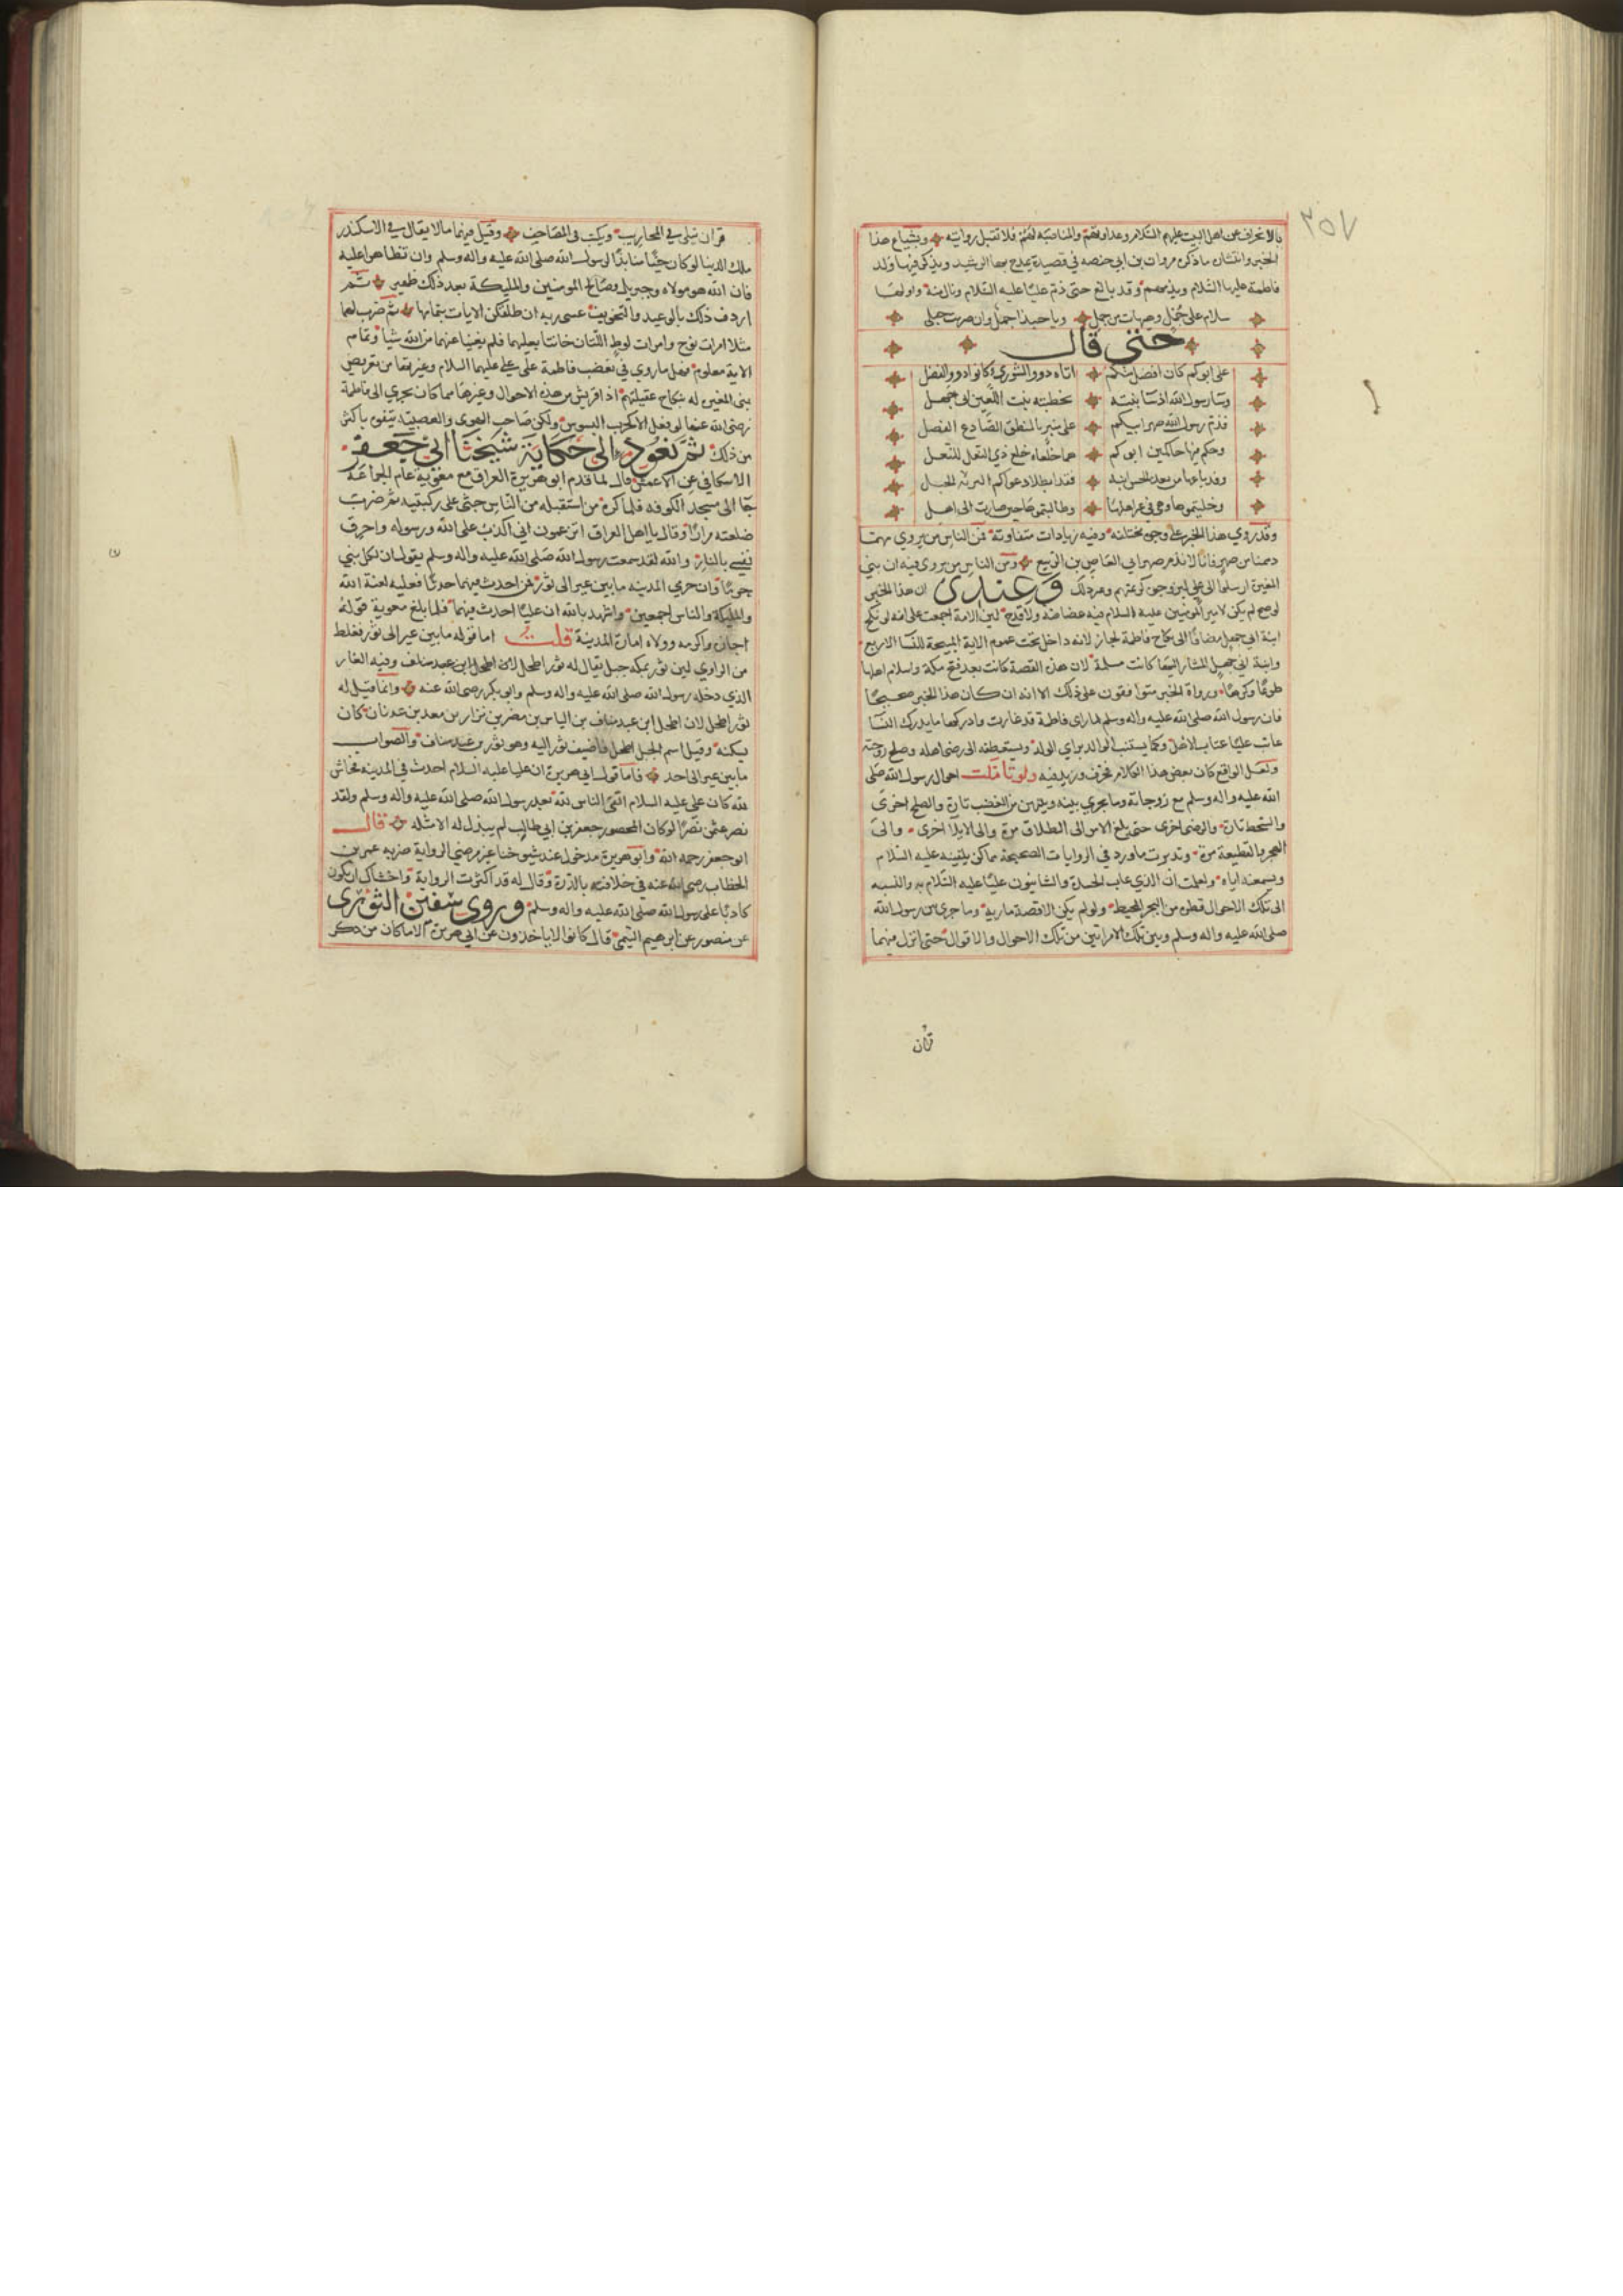 ٣٥٧
بالانحراف عن اهل البيت عليهم السلام وعداوتهم والمناصبة لهم فلا تقبل روايته ويشياع هذا
الخبر وانتشاره ما ذكره مروان بن ابي حفصه في قصيدة يمدح بها الرشيد ويذكر فيها ولد
فاطمة عليها السلام ويذمهم وقد بالغ حتى ذم عليا عليه السلام ونال منه واولها
سلام على جمل وهيهات من جمل ويا حبذا جمل وان صرمت حبلي
حتى قال
علي ابوكم كان افضل منكم اباه ذوو الشورى وكانوا ذوو الفضل
وساء رسول الله اذ ساء بنته بخطبته بنت اللعين ابي جهل
فذم رسول الله صهر ابيكم على منبر بالمنطق الصادع الفصل
وحكم فيها حاكمين ابوكم هما خلعاه خلع ذي النعل للنعل
وقد باعها من بعده الحسن ابنه فقد ابطلا دعواكم الرثه الحبل
وخليتموها وهي في غير اهلها وطالبتموها حين صارت الى اهل
وقد روي هذا الخبر على وجوه مختلفه وفيه زيادات متفاوتة فمن الناس من يروي مهما
ذممنا من صهر فانا لا نذم صهر ابي العاص بن الربيع ومن الناس من يروي فيه ان بني
المغيرة ارسلوا الى علي ليزوجوه كريمتهم وغير ذلك وعندي ان هذا الخبر
لو صح لم يكن لامير المومنين عليه السلام فيه غضاضه ولا قدح لين الامة اجمعت على انه لو نكح
ابنة ابي جهل مضافا الى نكاح فاطمة لجاز لانه داخل تحت عموم الاية المبيحة للنسا الاربع
وابنة ابي جهل المشار اليها كانت مسلمة لان هذه القصة كانت بعد فتح مكة واسلام اهلها
طوعا وكرها ورواة الخبر متوافقون على ذلك الا انه ان كان هذا الخبر صحيحا
فان رسول الله صلى الله عليه واله وسلم لما راى فاطمة قد غارت وادركها ما يدرك النسا
عاتب عليا عتاب الاهل وكما يستثبت الوالد براي الولد ويستعطفه الى رضى اهله وصلح زوجته
ولعل الواقع كان بعض هذا الكلام فحرف وزيد فيه ولو تاملت احوال رسول الله صلى
الله عليه واله وسلم مع زوجاته وما يجري بينه وبينهن من الغضب تارة والصلح اخرى
والسخط تارة والرضى اخرى حتى بلغ الامر الى الطلاق مرة والى الايلا اخرى والى
الهجر والقطيعة مرة وتدبرت ما ورد في الروايات الصحيحة مما كن يلقينه عليه السلام
ويسمعنه اياه ولعلمت ان الذي عاب الحسدة والشانيون عليا عليه السلام به والنسبه
الى تلك الاحوال قطرة من البحر المحيط ولو لم يكن الا قصة مارية وما جرى بين رسول الله
صلى الله عليه واله وسلم وبين تلك الامراتين من تلك الاحوال والاقوال حتى انزل فيهما
قران
قران يتلى في المحاريب ويكتب في المصاحف وقيل فيهما ما لا يقال في الاسكندر
ملك الدنيا لو كان حيا منابذا لرسول الله صلى الله عليه واله وسلم وان تظاهرا عليه
فان الله هو مولاه وجبريل وصالح المومنين والمليكة بعد ذلك ظهير ثم
اردف ذلك بالوعيد والتخويف عسى ربه ان طلقكن الايات بتمامها ثم ضرب لهما
مثلا امرات نوح وامرات لوط اللتان خانتا بعليهما فلم يغنيا عنهما من الله شيا وتمام
الاية معلوم فهل ما روي في تغضب فاطمة على علي عليهما السلام وغيرتها من تعريض
بني المغيره له بنكاح عقيلتهم اذا قويس من هذه الاحوال وغيرها مما كان يجري الى فاطمة
من ذلك ثم نعود الى حكاية شيخنا ابي جعفر
الاسكافي عن الاعمش قال لما قدم ابو هريرة العراق مع معوية عام الجماعة
جا الى مسجد الكوفه فلما كثرة من استقبله من الناس جثى على ركبتيه ثم ضرب
صلعته مرارا وقال يا اهل العراق اتزعمون اني اكذب على الله ورسوله واحرق
نفسي بالنار والله لقد سمعت رسول الله صلى الله عليه واله وسلم يقول ان لكل نبي
حرما وان حرمي المدينه ما بين عير الى ثور فمن احدث فيهما حدثا فعليه لعنة الله
والمليكة والناس اجمعين واشهد بالله ان عليا احدث فيهما فلما بلغ معوية قوله
اجازه واكرمه وولاه امارة المدينة قلت اما قوله ما بين عير الى ثور فغلط
من الراوي لين ثور بمكه جبل يقال له ثور اطحل لان اطحل ابن عبد مناف وفيه الغار
الذي دخله رسول الله صلى الله عليه واله وسلم وابو بكر رضي الله عنه وانما قيل له
ثور اطحل لان اطحل ابن عبد مناف بن الياس بن مضر بن نزار بن معد بن عدنان كان
يسكنه وقيل اسم الجبل اطحل فاضيف ثور اليه وهو ثور بن عبد مناف والصواب
ما بين عير الى احد فاما قول ابي هريرة ان عليا عليه السلام احدث في المدينه فحاش
لله كان علي عليه السلام اتقى الناس لله بعد رسول الله صلى الله عليه واله وسلم ولقد
نصر عثمن نصرا لو كان المحصور جعفر بن ابي طالب لم يبذل له الا مثله قال
ابو جعفر رحمه الله وابو هريرة مدخول عند شيوخنا غير مرضي الرواية ضربه عمر بن
الخطاب رضي الله عنه في خلافته بالدرة وقال له قد اكثرت الرواية واخشاك ان تكون
كاذبا على رسول الله صلى الله عليه واله وسلم وروى سفين الثوري
عن منصور عن ابرهيم التيمي قال كانوا لا ياخذون عن ابي هريرة الا ما كان من ذكر